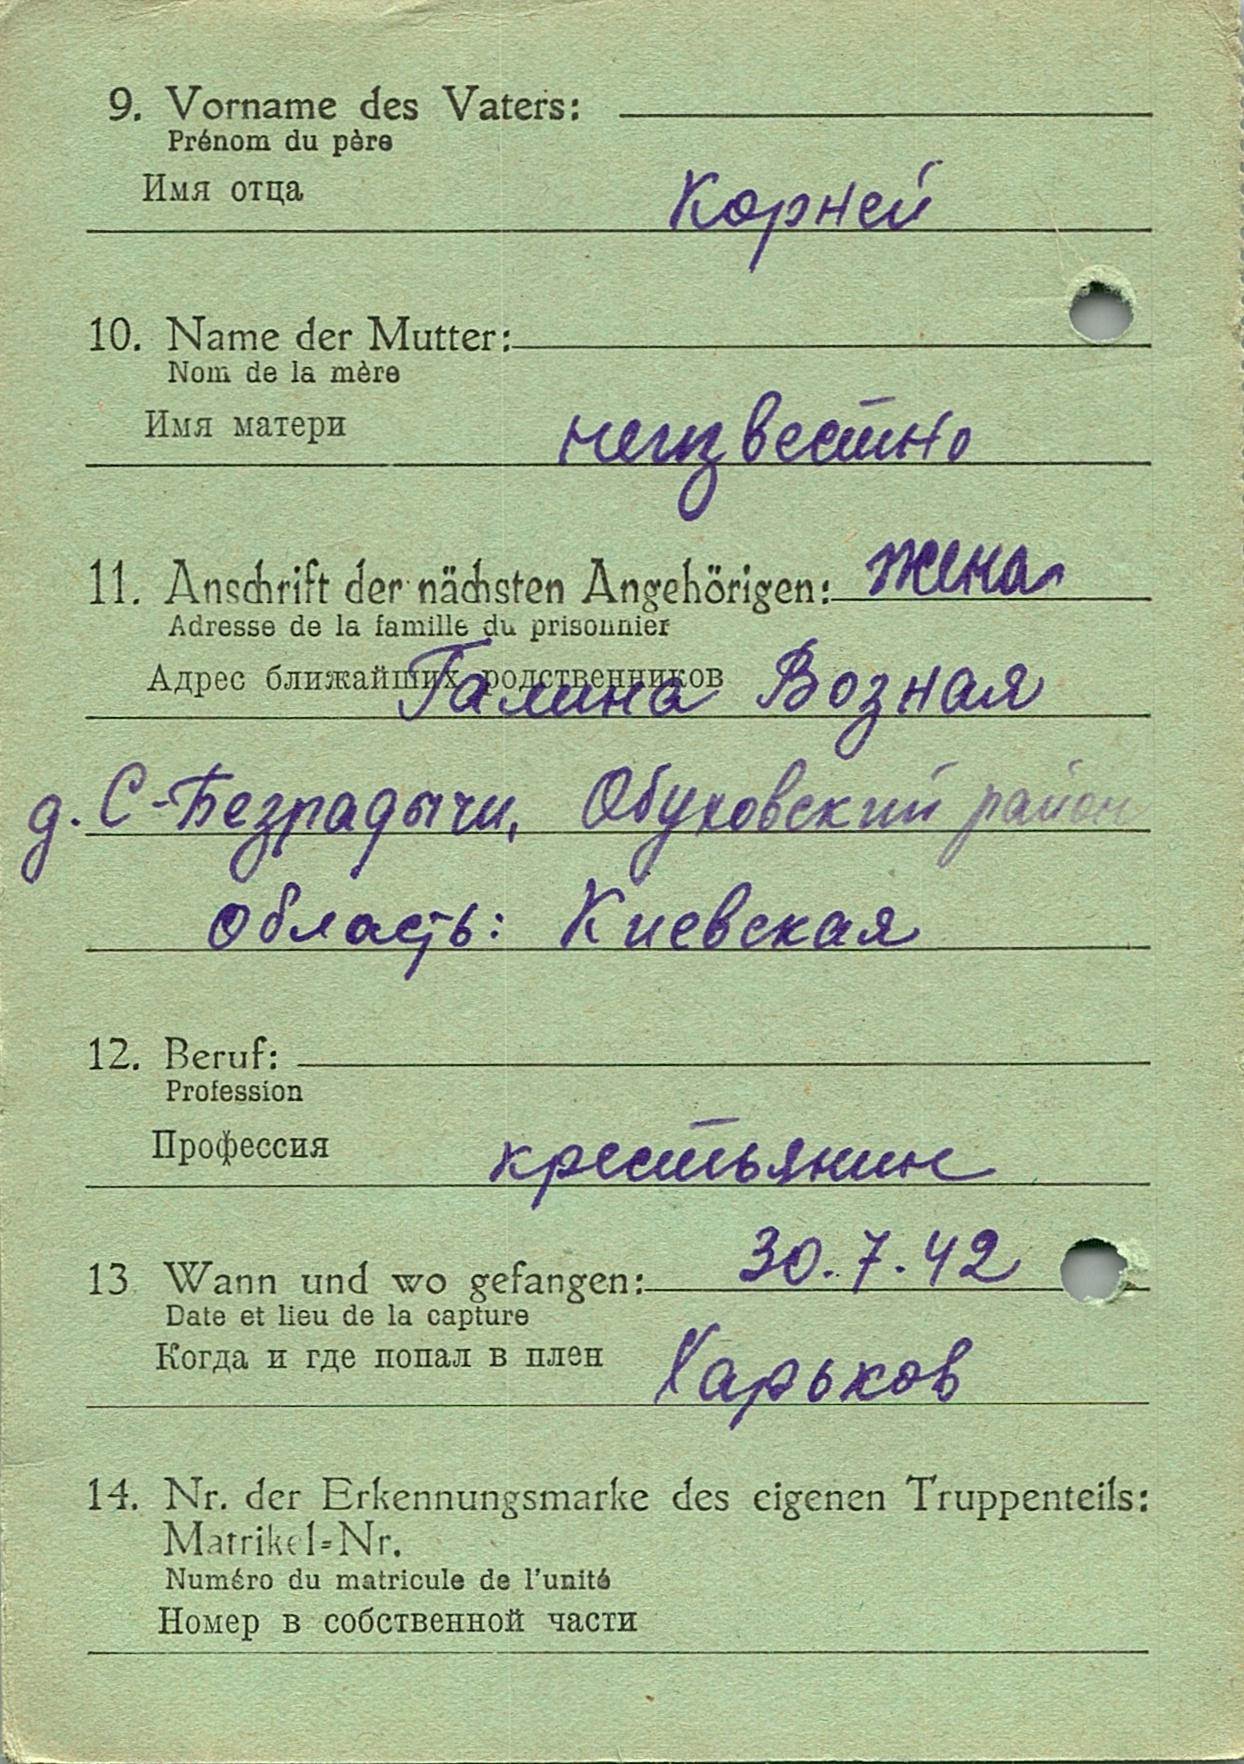 9. Vorname des Vaters:
Prénom du père
Имя отца
Корней
10. Name der Mutter:
Nom de la mère
Имя матери
неизвестно
11. Anschrift der nächsten Angehörigen: жена
Adresse de la famille du prisonnier
Адрес ближайших родственников
Галина Возная
д. С-Безрадычи, Обуховский район
область: Киевская
12. Beruf:
Profession
Профессия
крестьянин
13 Wann und wo gefangen: 30.7.42
Date et lieu de la capture
Когда и где попал в плен
Харьков
14. Nr. der Erkennungsmarke des eigenen Truppenteils:
Matrikel=Nr.
Numéro du matricule de l'unité
Номер в собственной части